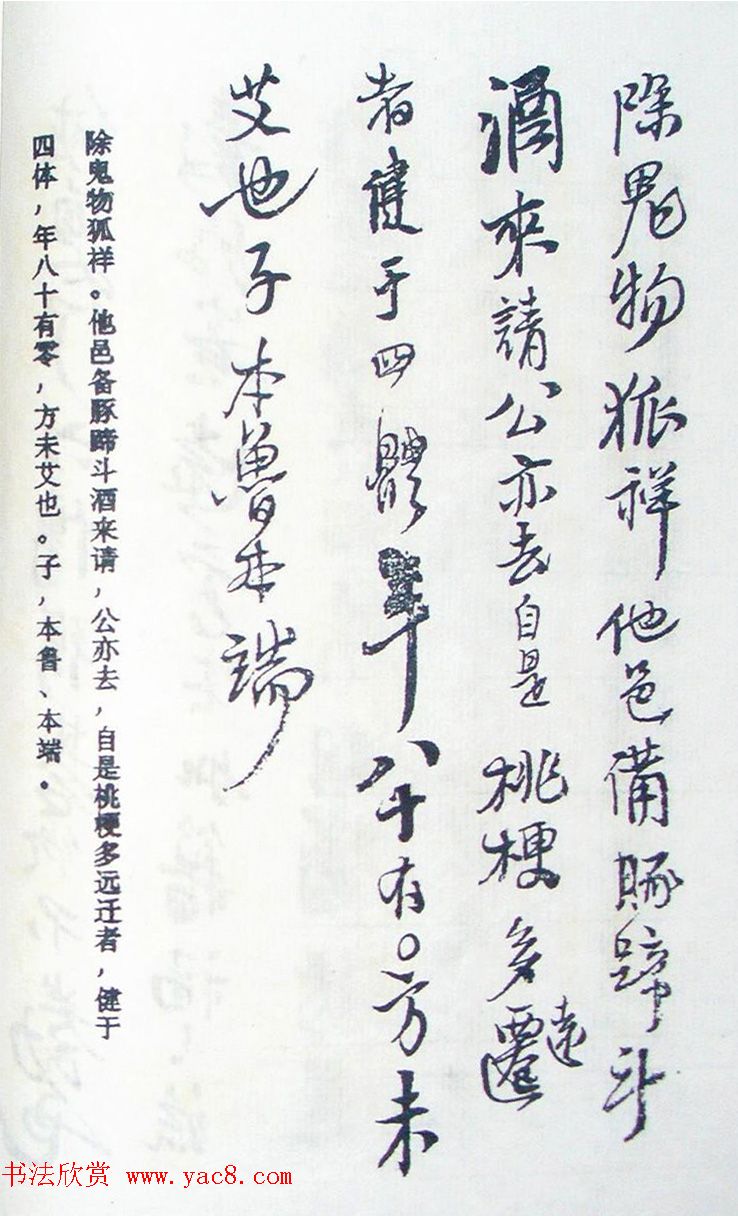 除鬼物狐祥他邑備豚蹄斗
酒來請公亦去自是桃梗多遷遠
者健于四體年八十有○方未
艾也子本魯本端
除鬼物狐样。他邑备豚蹄斗酒来请，公亦去，自是桃梗多远迁者，健于
四体，年八十有零，方未艾也。子，本鲁、本端。
书法欣赏 www.yac8.com